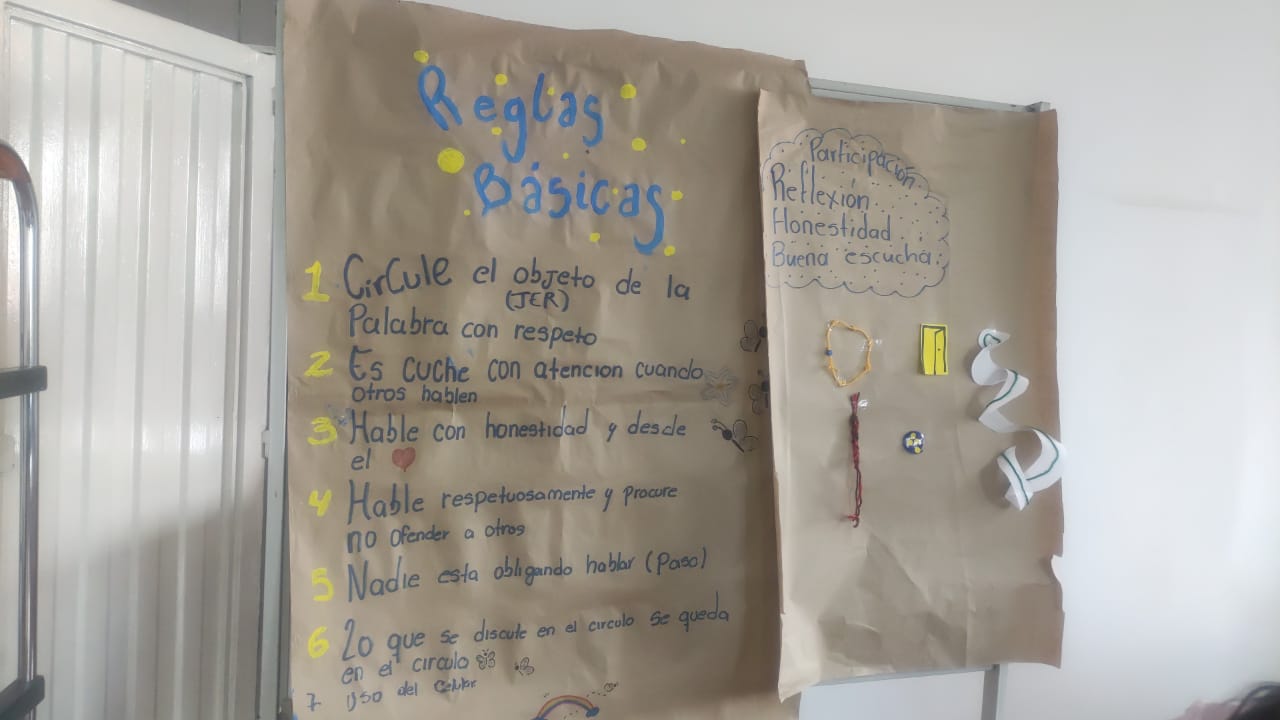 Reglas
Básicas
1 Circule el objeto de la
(JER)
Palabra con respeto
2 Es cuche con atencion cuando
otros hablen
3 Hable con honestidad y desde
el
4 Hable respetuosamente y procure
no ofender a otros
5 Nadie esta obligando hablar (Paso)
6 Lo que se discute en el circulo se queda
en el circulo
7 Uso del Celular
Participación
Reflexión
Honestidad
Buena escucha